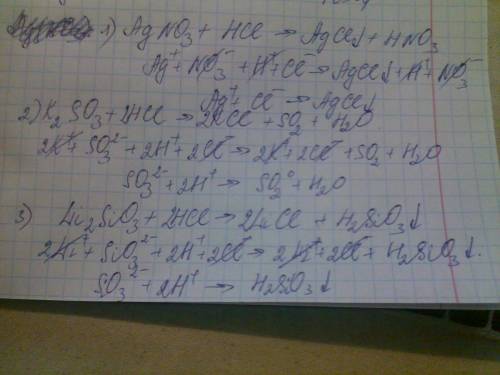 1) AgNO₃ + HCl → AgCl↓ + HNO₃
Ag⁺ + NO₃⁻ + H⁺ + Cl⁻ → AgCl↓ + H⁺ + NO₃⁻
Ag⁺ + Cl⁻ → AgCl↓
2) K₂SO₃ + 2HCl → 2KCl + SO₂ + H₂O
2K⁺ + SO₃²⁻ + 2H⁺ + 2Cl⁻ → 2K⁺ + 2Cl⁻ + SO₂ + H₂O
SO₃²⁻ + 2H⁺ → SO₂⁰ + H₂O
3) Li₂SiO₃ + 2HCl → 2LiCl + H₂SiO₃↓
2Li⁺ + SiO₃²⁻ + 2H⁺ + 2Cl⁻ → 2Li⁺ + 2Cl⁻ + H₂SiO₃↓.
SO₃²⁻ + 2H⁺ → H₂SiO₃↓